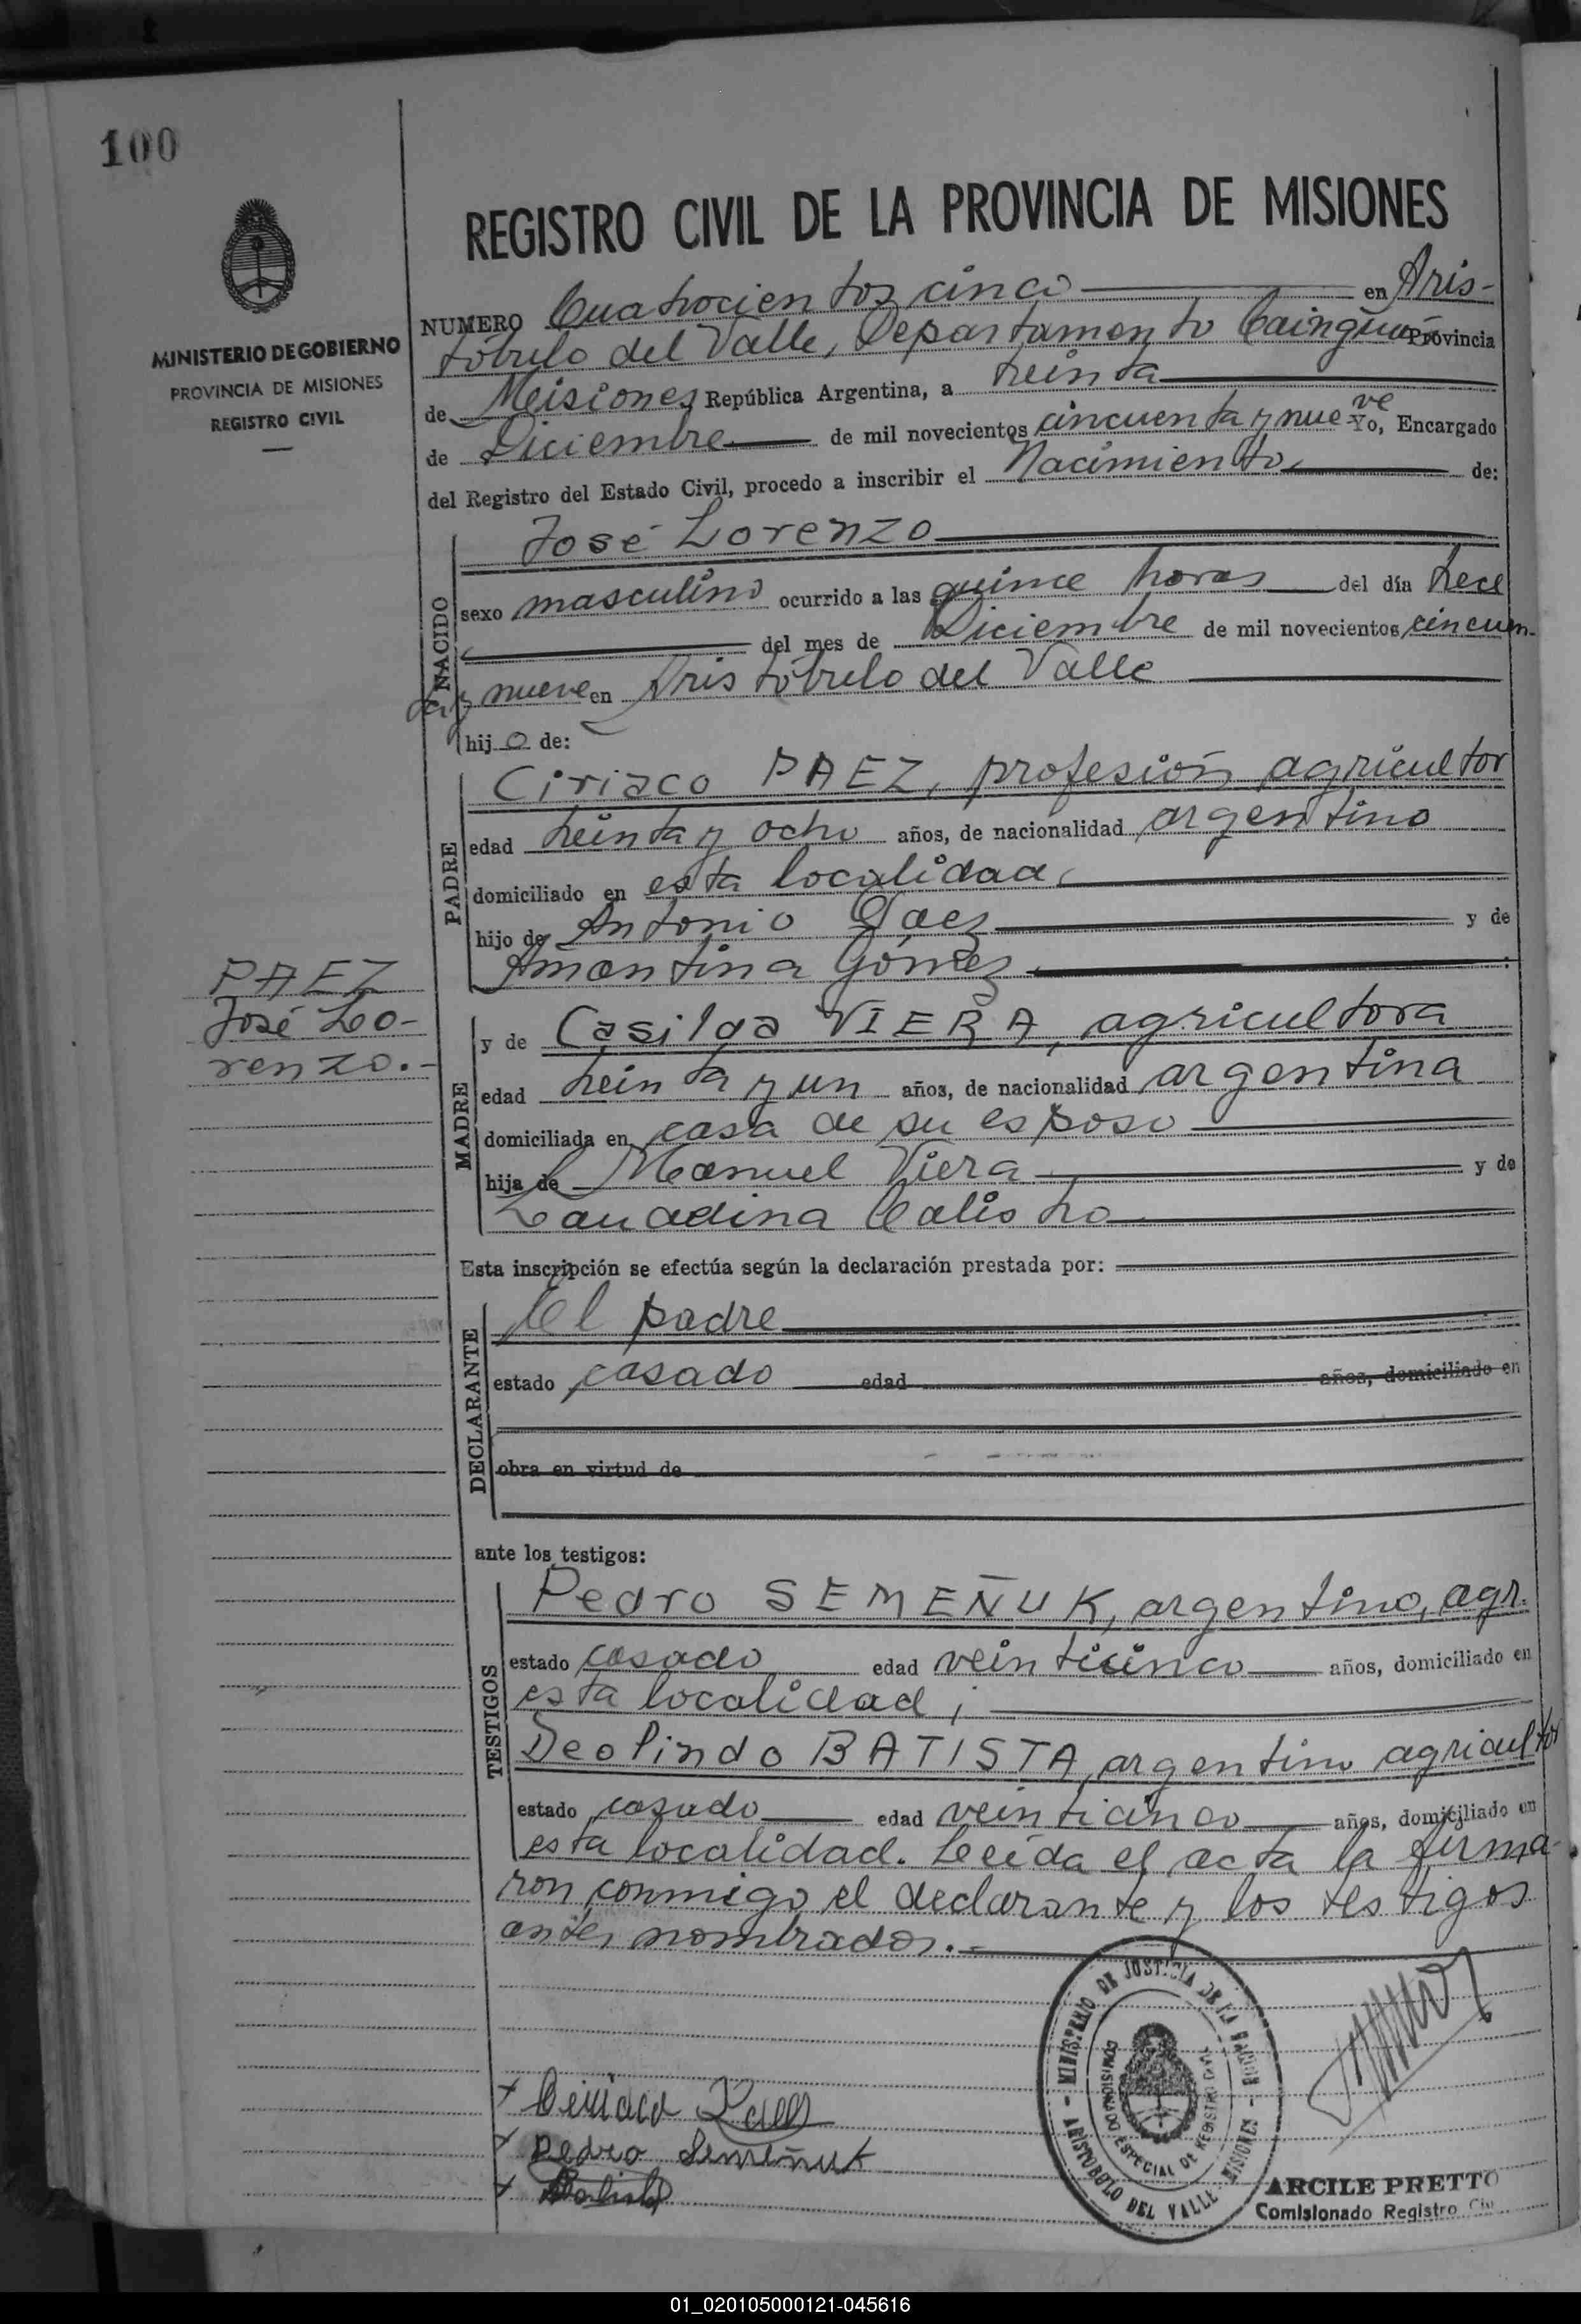 100
REGISTRO CIVIL DE LA PROVINCIA DE MISIONES
MINISTERIO DE GOBIERNO
PROVINCIA DE MISIONES
REGISTRO CIVIL
NUMERO Cuatrocientos cinco en Aris-
tóbulo del Valle, Departamento Cainguás Provincia
de Misiones República Argentina, a treinta
de Diciembre de mil novecientos cincuenta y nueve Yo, Encargado
del Registro del Estado Civil, procedo a inscribir el Nacimiento de:
NACIDO
José Lorenzo
sexo masculino ocurrido a las quince horas del día trece
del mes de Diciembre de mil novecientos cincuen-
ta y nueve en Aristóbulo del Valle
hijo de:
PADRE
Ciriaco PAEZ, profesión agricultor
edad treinta y ocho años, de nacionalidad argentino
domiciliado en esta localidad,
hijo de Antonio Paez y de
Amantina Gómez
PAEZ
José Lo-
renzo.-
MADRE
y de Casilda VIERA, agricultora
edad treinta y un años, de nacionalidad argentina
domiciliada en casa de su esposo
hija de Manuel Viera y de
Laudina Calistro
Esta inscripción se efectúa según la declaración prestada por:
DECLARANTE
El padre
estado casado edad años, domiciliado en
obra en virtud de
ante los testigos:
TESTIGOS
Pedro SEMEÑUK, argentino, agr.
estado casado edad veinticinco años, domiciliado en
esta localidad;
Deolindo BATISTA, argentino agricultor
estado casado edad veinticinco años, domiciliado en
esta localidad. Leída el acta la firma-
ron conmigo el declarante y los testigos
antes nombrados.-
MINISTERIO DE JUSTICIA DE LA NACION
COMISIONADO ESPECIAL DE REGISTRO CIVIL
ARISTOBULO DEL VALLE - MISIONES
Ciriaco Paez
Pedro Semeñuk
Batista
ARCILE PRETTO
Comisionado Registro Civ
01_020105000121-045616